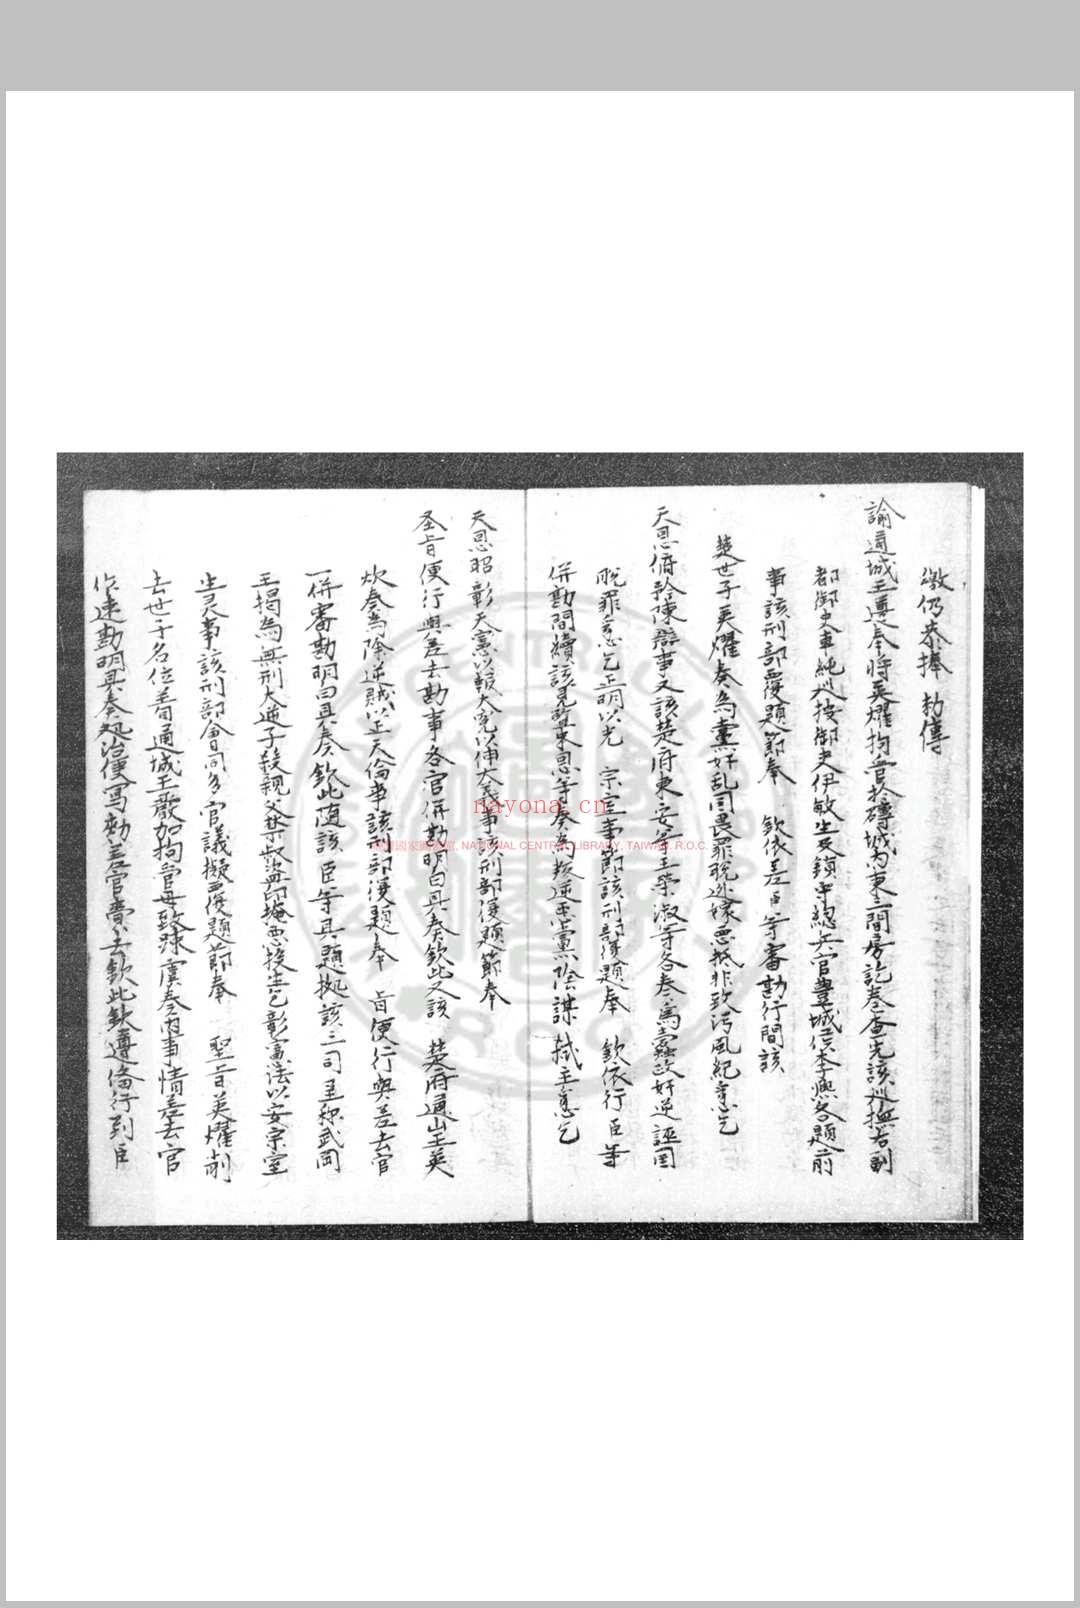 繳仍恭捧 勑傳
諭通城王遵奉將英燿拘管於磚城內東三間房訖卷查先該巡撫右副
都御史車純巡按御史伊敏生及鎮守總兵官豐城侯李熙各題前
事該刑部覆題節奉 欽依差臣等審勘行間該
楚世子英燿奏為黨奸乱囯畏罪脫逃嫁惡抵非致污風紀懇乞
天恩俯 陳辯事又該楚府東安等王榮淑等各奏為 奸逆誣囯
脫罪懇乞正明以光 宗室事節該刑部覆題奉 欽依行臣等
併勘間續該 恩等奏為叛逆惡黨陰謀弒主懇乞
天恩昭彰天憲以 大冤以伸大義事該刑部覆題節奉
圣旨便行與差去勘事各官併勘明白具奏欽此又該 楚府通山王英
炊奏為除逆賊以正天倫事該刑部覆題奉 旨便行與差去官
一併審勘明白具奏欽此随該臣等具題據該三司呈称武岡
王揭為無刑大逆子殺親父禁叔盜印掩惡 害乞彰憲法以安宗室
生灵事該刑部會同多官議擬覆題節奉 聖旨英燿削
去世子名位着通城王嚴加拘管毋致踈虞奏內事情差去官
作速勘明具奏処治便寫勑差官賫去欽此欽遵俻行到臣
nayona.cn
國家圖書館, NATIONAL CENTRAL LIBRARY, TAIWAN, R.O.C.